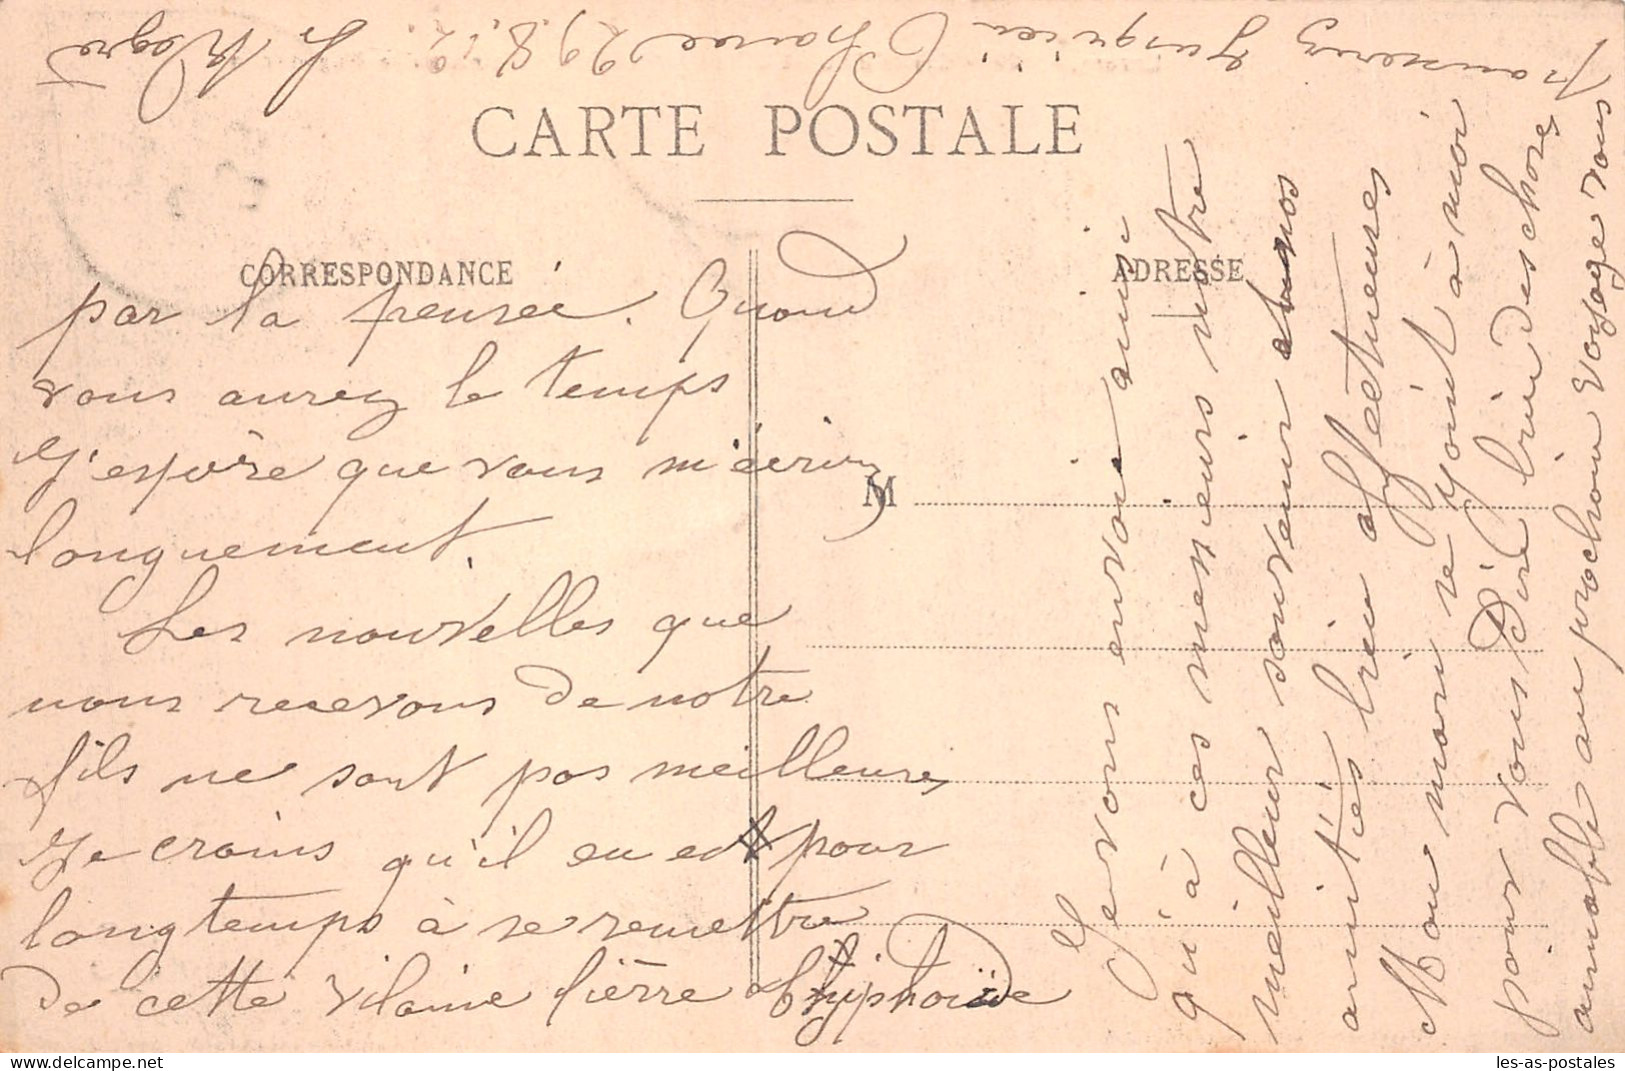 CARTE POSTALE
CORRESPONDANCE
ADRESSE
M
par la pensée. Quand
vous aurez le temps
J'espère que vous m'écrirez
longuement.
Les nouvelles que
nous recevons de notre
fils ne sont pas meilleures,
Je crains qu'il en est pour
longtemps à se remettre
de cette vilaine fièvre typhoïde
Je vous envoie ainsi
qu'à ces messieurs notre
meilleur souvenir et nos
amitiés bien affectueuses
Mon mari se joint à moi
pour vous dire bien des choses
aimables au prochain voyage vous
29.8.12.
les-as-postales